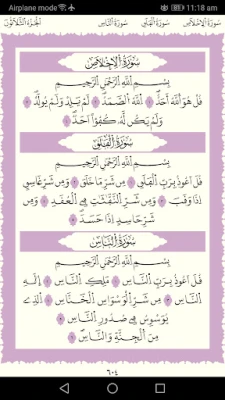 Airplane mode 11:18 am
سورة الإخلاص سورة الفلق سورة الناس الجزء الثلاثون
سُورَةُ الإِخْلَاصِ
بِسْمِ اللَّهِ الرَّحْمَٰنِ الرَّحِيمِ
قُلْ هُوَ اللَّهُ أَحَدٌ ١ اللَّهُ الصَّمَدُ ٢ لَمْ يَلِدْ وَلَمْ يُولَدْ ٣
وَلَمْ يَكُن لَّهُ كُفُوًا أَحَدٌ ٤
سُورَةُ الفَلَقِ
بِسْمِ اللَّهِ الرَّحْمَٰنِ الرَّحِيمِ
قُلْ أَعُوذُ بِرَبِّ الْفَلَقِ ١ مِن شَرِّ مَا خَلَقَ ٢ وَمِن شَرِّ غَاسِقٍ
إِذَا وَقَبَ ٣ وَمِن شَرِّ النَّفَّٰثَٰتِ فِي الْعُقَدِ ٤ وَمِن
شَرِّ حَاسِدٍ إِذَا حَسَدَ ٥
سُورَةُ النَّاسِ
بِسْمِ اللَّهِ الرَّحْمَٰنِ الرَّحِيمِ
قُلْ أَعُوذُ بِرَبِّ النَّاسِ ١ مَلِكِ النَّاسِ ٢ إِلَٰهِ
النَّاسِ ٣ مِن شَرِّ الْوَسْوَاسِ الْخَنَّاسِ ٤ الَّذِي
يُوَسْوِسُ فِي صُدُورِ النَّاسِ ٥
مِنَ الْجِنَّةِ وَالنَّاسِ ٦
٦٠٤